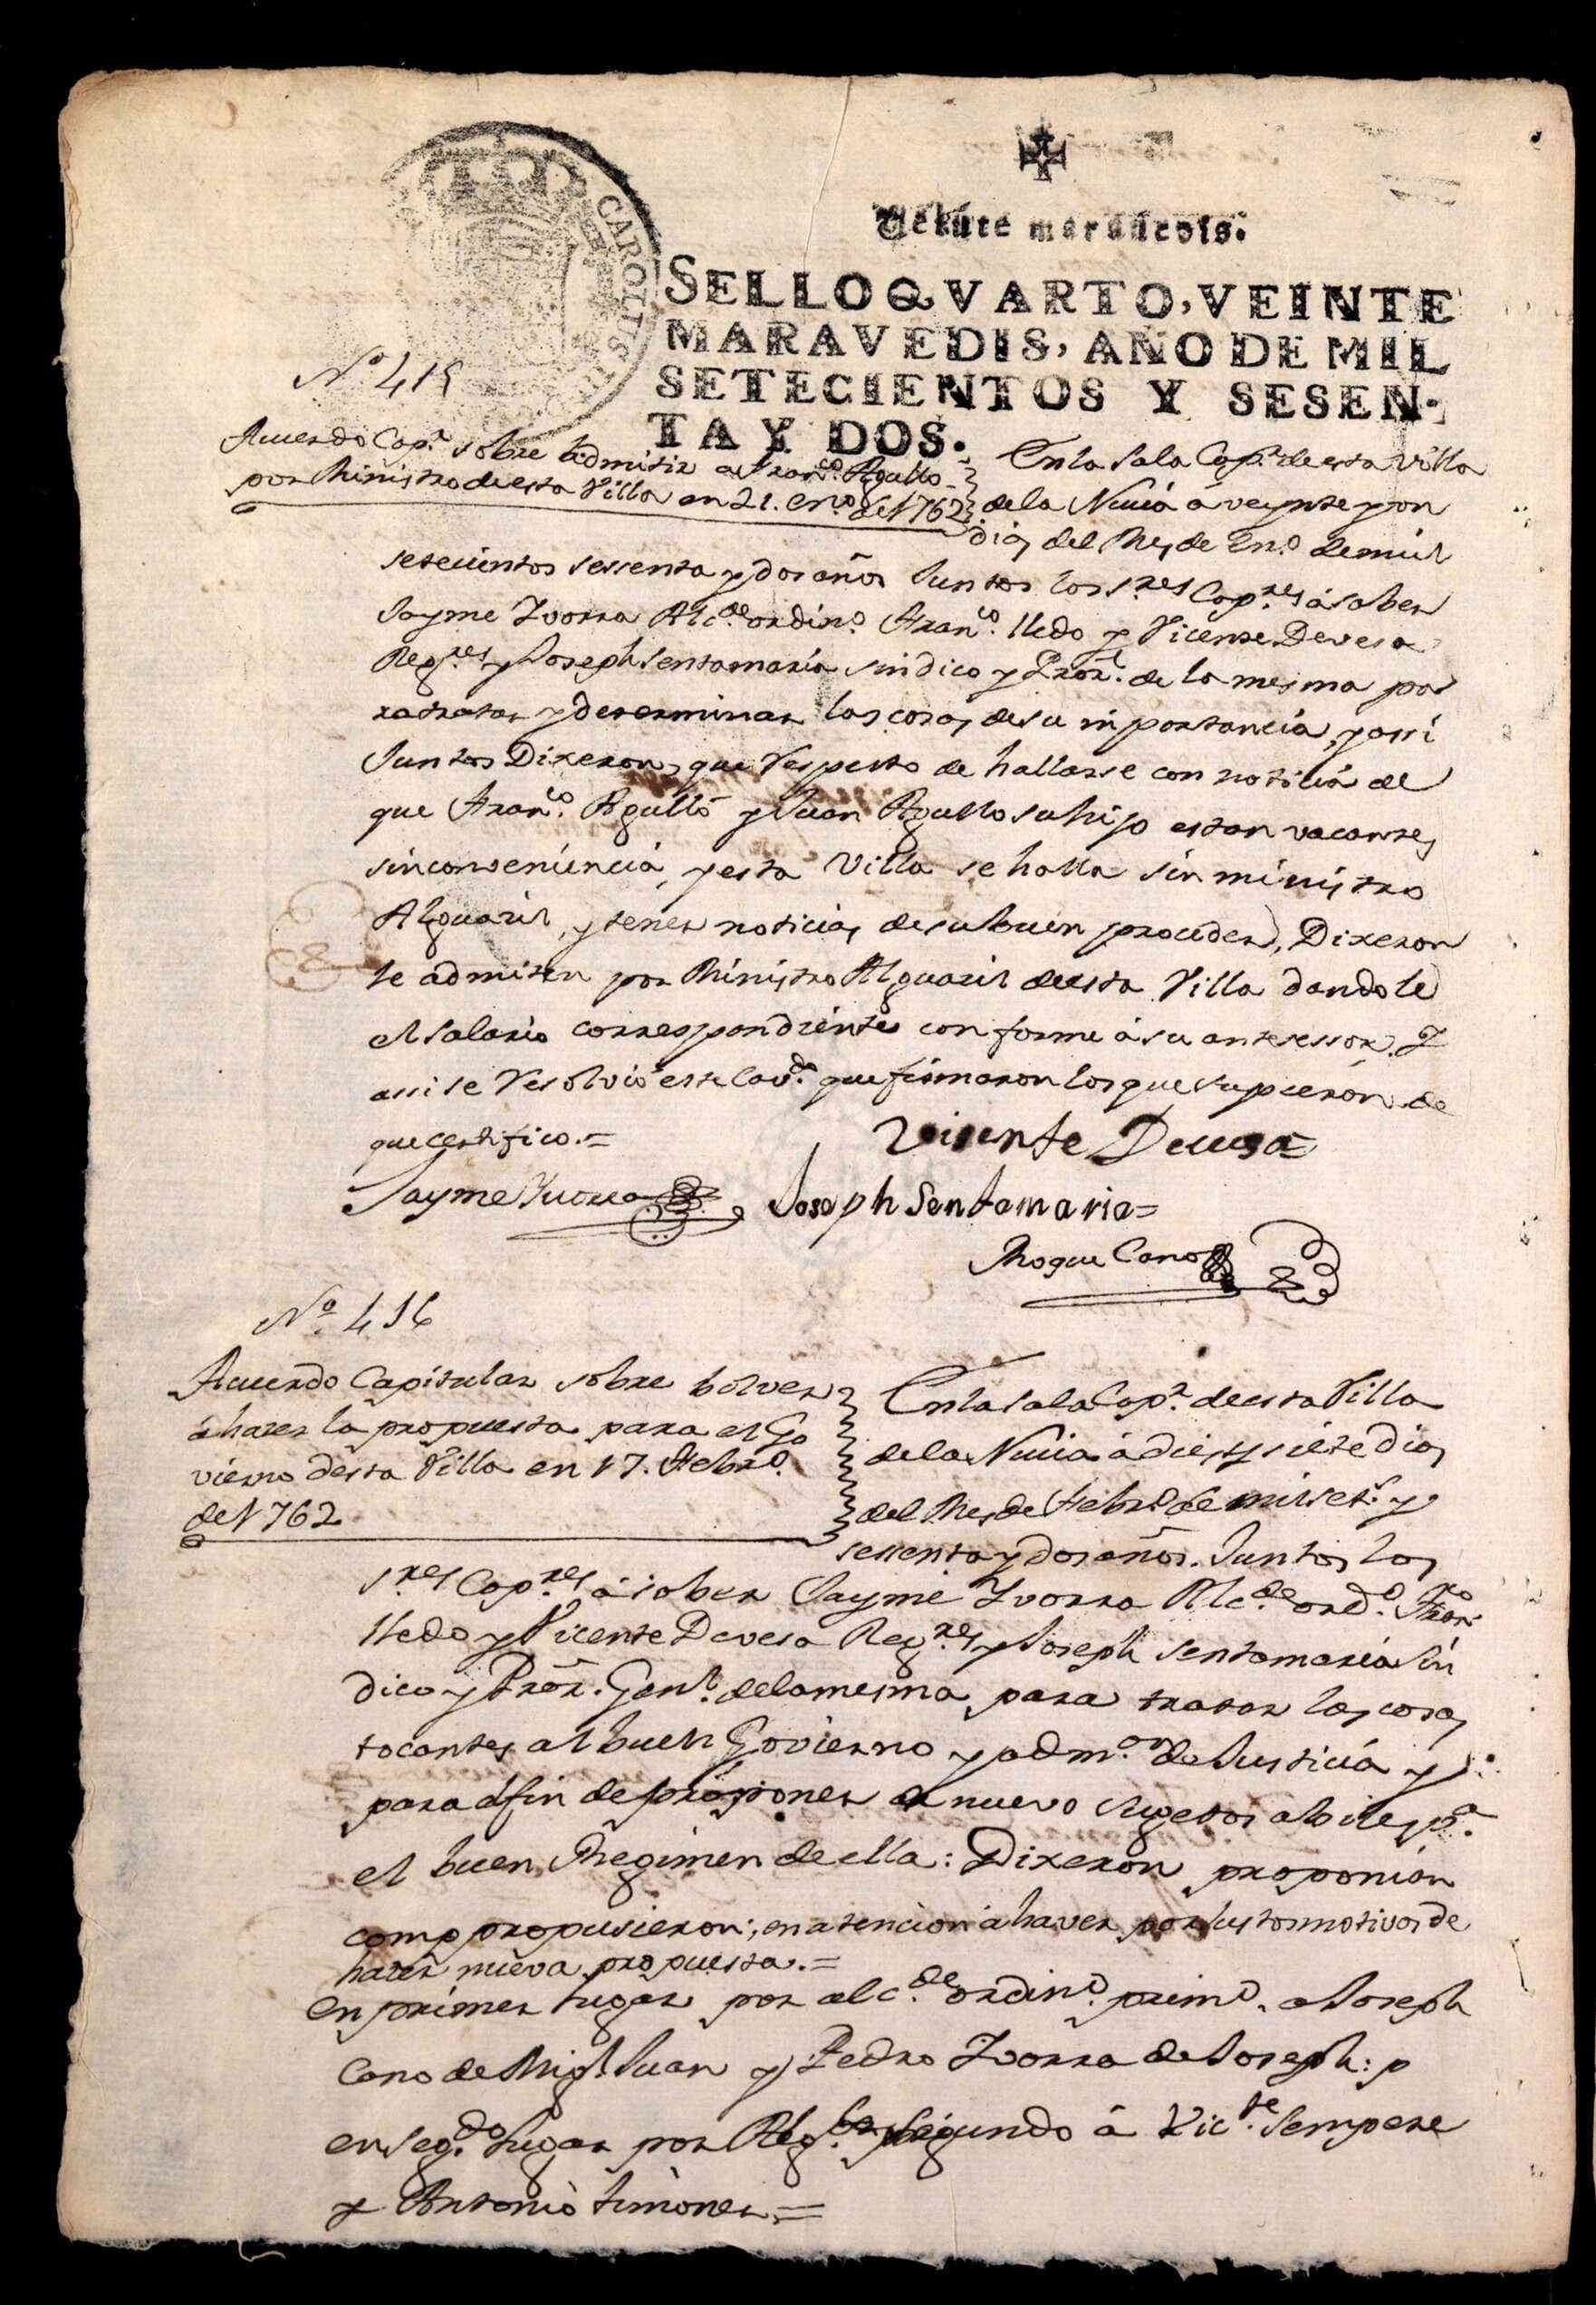 Veinte maravedis.
SELLO QVARTO, VEINTE
MARAVEDIS, AÑO DE MIL
SETECIENTOS Y SESEN-
TA Y DOS.
CAROLUS
Nº 415
Acuerdo Cap.r sobre admitir a Fran.co Agullo
por Ministro de esta Villa en 21. En.o de 1762
En la Sala Cap.r de esta Villa
de la Nucia á veynte y un
dias del Mes de En.o de mil
setecientos sessenta y dos años Juntos los S.res Cap.res á saber
Jayme Ivorra Alc.de ordin.o Fran.co Lledo y Vicente Devesa
Reg.res y Joseph Sentamaria sindico y Pror.r de la mesma pa
ra tratar y determinar las cosas de su importancia, y assi
Juntos Dixeron, que respecto de hallarse con noticia de
que Fran.co Agulló y Juan Agullo su hijo estan vacantes
sin conveniencia, y esta Villa se halla sin ministro
Alguazil, y tener noticias de su buen proceder, Dixeron
le admiten por Ministro Alguazil de esta Villa dandole
el salario correspondiente conforme á su antesessor. Y
assi se resolvió este Cav.do que firmaron los que supieron de
que certifico.=
Visente Devesa=
Jayme Ivorra
Joseph Sentamaria=
Roque Cano
Nº 416
Acuerdo Capitular sobre bolver
á hazer la propuesta para el Go
vierno desta Villa en 17. Febr.o
de 1762
En la Sala Cap.r de esta Villa
de la Nucia á diez y siete dias
del Mes de Febr.o de mil set.s y
sessenta y dos años. Juntos los
S.res Cap.res á saber Jayme Ivorra Alc.de ord.o Fran.co
Lledo y Vicente Devesa Reg.res y Joseph Sentamaria Sin
dico y Pror.r Gen.l de la mesma para tratar las cosas
tocantes al buen Govierno y adm.on de Justicia y
para áfin de proponer de nuevo sugetos abiles p.a
el buen Regimen de ella: Dixeron proponian
como propusieron; en atencion á haver por justos motivos de
hazer nueva propuesta.=
en primer lugar por alc.de ordin.o prim.o a Joseph
Cano de Mig.l Juan y Pedro Ivorra de Joseph: y
en seg.do lugar por Reg.or segundo á Vic.te Sempere
y Antonio Limones=